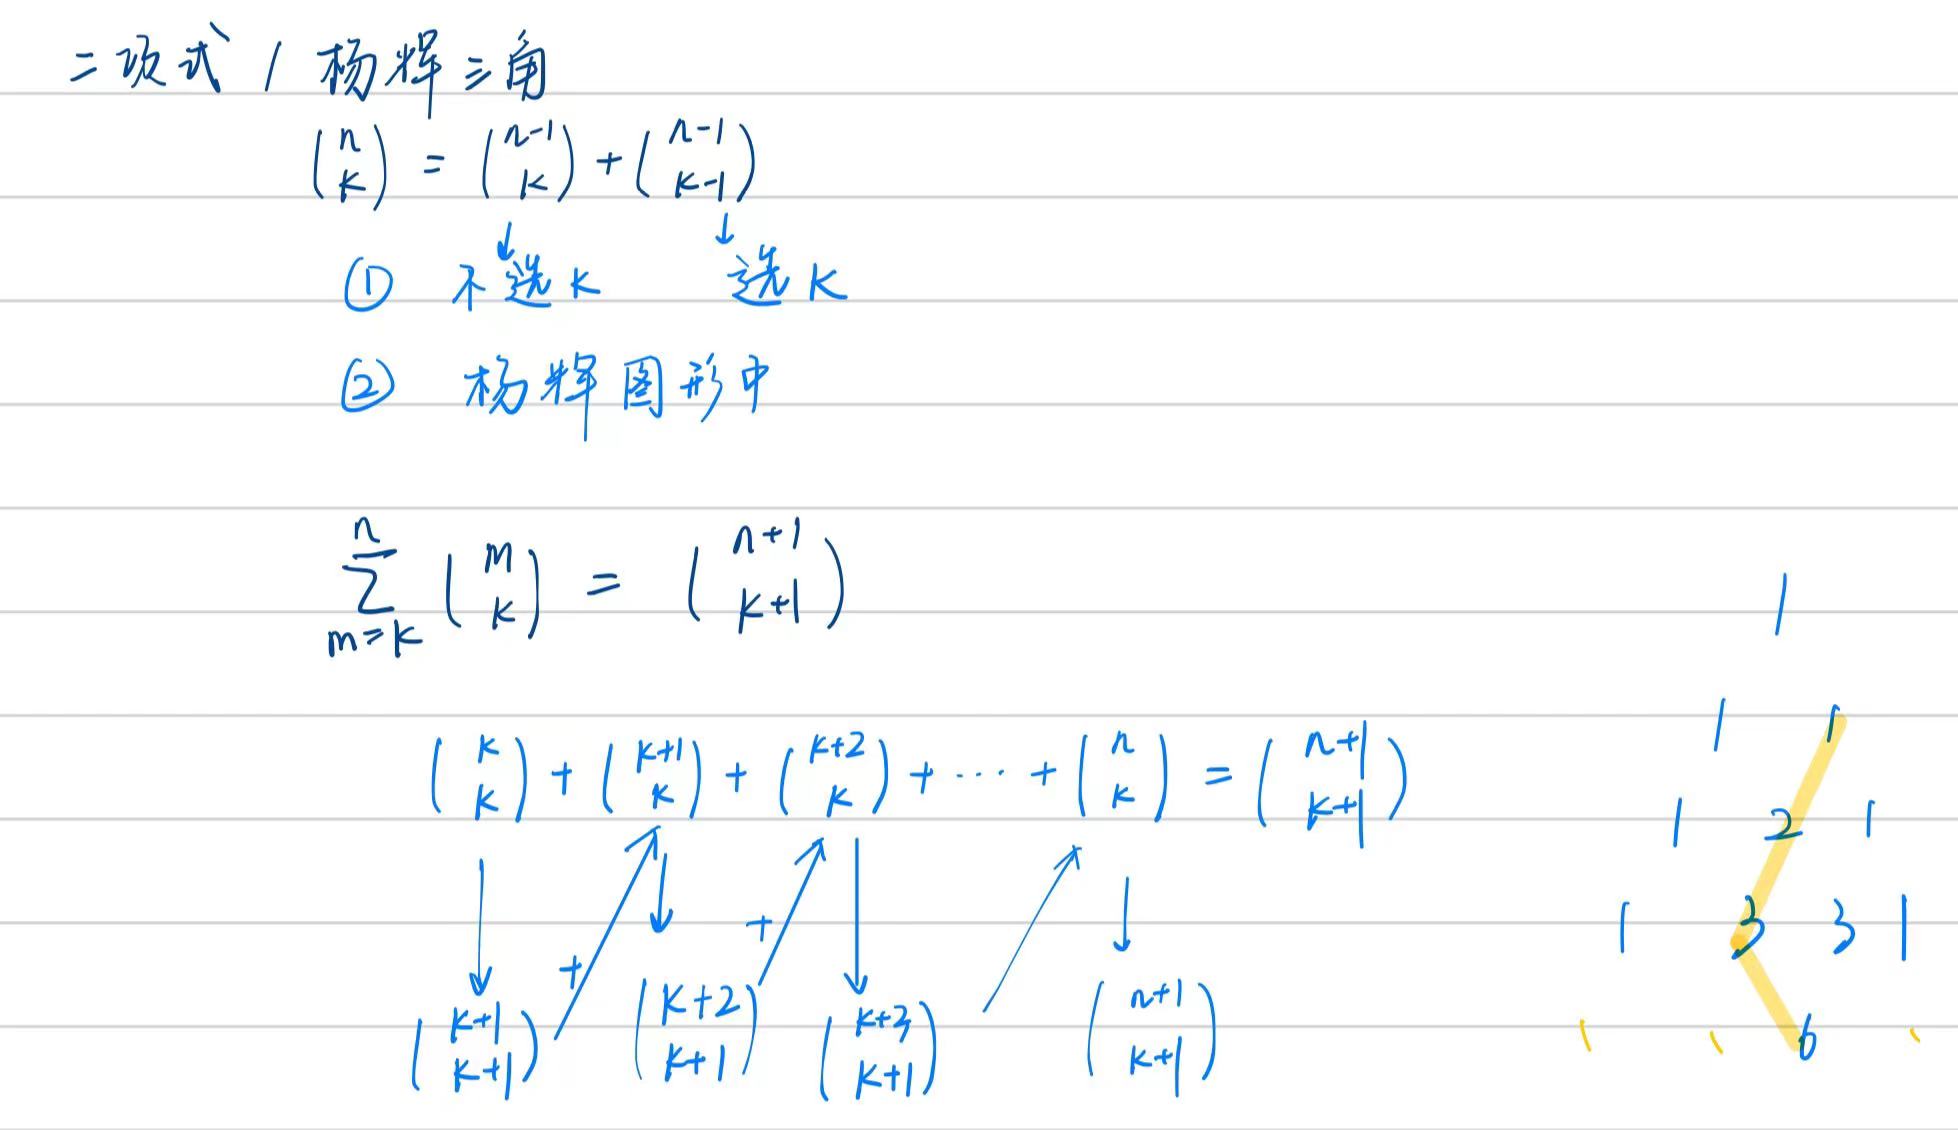 二项式 / 杨辉三角
(n k) = (n-1 k) + (n-1 k-1)
↓ ↓
① 不选k 选k
② 杨辉图形中
n
∑ (m k) = (n+1 k+1)
m=k
(k k) + (k+1 k) + (k+2 k) + ··· + (n k) = (n+1 k+1)
+ +
(k+1 k+1) (k+2 k+1) (k+3 k+1) (n+1 k+1)
1
1 1
1 2 1
1 3 3 1
6